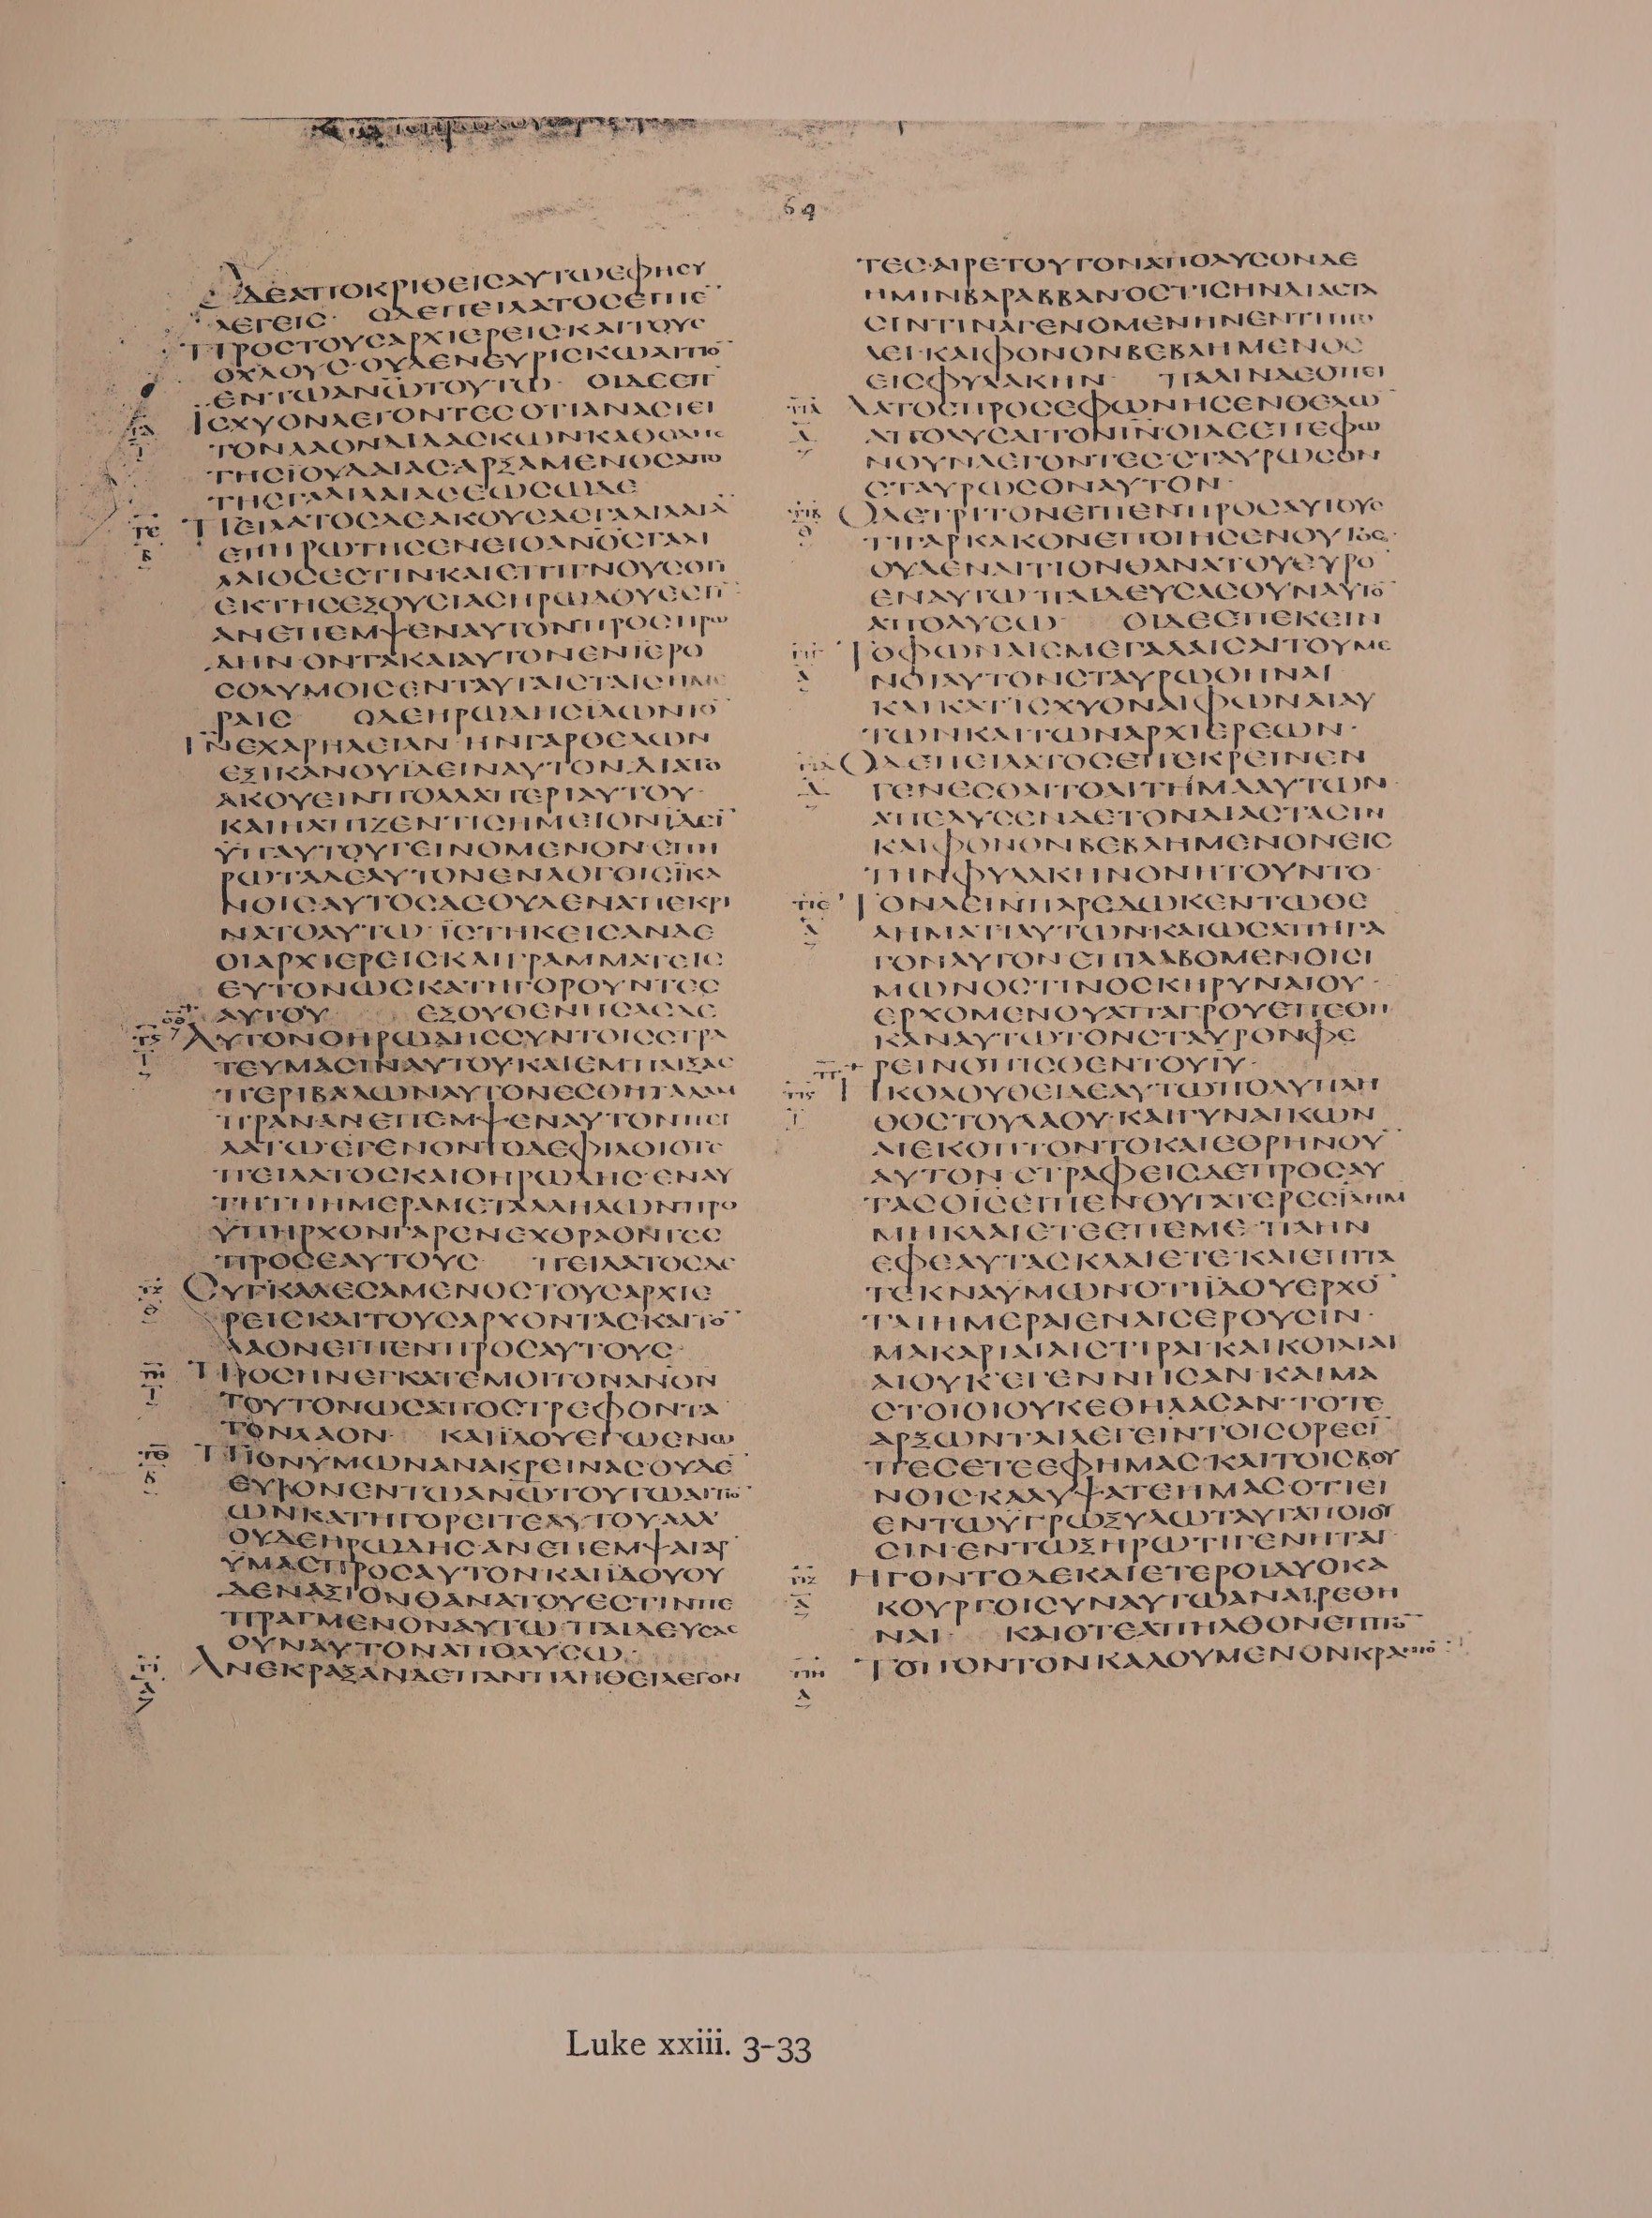 ΔΕΑΠΟΚΡΙΘΕΙϹΑΥΤΩΕΦΗϹΥ
ΛΕΓΕΙϹ· ΟΔΕΠΕΙΛΑΤΟϹΕΙΠΕ̅
ΠΡΟϹΤΟΥϹΑΡΧΙΕΡΕΙϹΚΑΙΤΟΥϹ
ΟΧΛΟΥϹ·ΟΥΔΕΝΕΥΡΙϹΚΩΑΙΤΙΟ̅
ΕΝΤΩΑΝ̅Ω̅ΤΟΥΤΩ· ΟΙΔΕΕΠ
ΙϹΧΥΟΝΛΕΓΟΝΤΕϹΟΤΙΑΝΑϹΙΕΙ
ΤΟΝΛΑΟΝΔΙΔΑϹΚΩΝΚΑΘΟΛΗϹ
ΤΗϹΪΟΥΔΑΙΑϹΑΡΞΑΜΕΝΟϹΑΠΟ
ΤΗϹΓΑΛΙΛΑΙΑϹΕΩϹΩΔΕ
ΠΕΙΛΑΤΟϹΔΕΑΚΟΥϹΑϹΓΑΛΙΛΑΙΑ̅
ΕΠΗΡΩΤΗϹΕΝΕΙΟΑΝ̅Ο̅Ϲ̅ΓΑΛΙ
ΛΑΙΟϹΕϹΤΙΝΚΑΙΕΠΙΓΝΟΥϹΟΤΙ
ΕΚΤΗϹΕΞΟΥϹΙΑϹΗΡΩΔΟΥΕϹΤΙ̅
ΑΝΕΠΕΜΨΕΝΑΥΤΟΝΠΡΟϹΗΡΩ
ΔΗΝ·ΟΝΤΑΚΑΙΑΥΤΟΝΕΝΙΕΡΟ
ϹΟΛΥΜΟΙϹΕΝΤΑΥΤΑΙϹΤΑΙϹΗΜΕ
ΡΑΙϹ ΟΔΕΗΡΩΔΗϹΪΔΩΝΤΟ̅
Ι̅Ν̅ΕΧΑΡΗΛΕΙΑΝ·ΗΝΓΑΡΘΕΛΩΝ
ΕΞΙΚΑΝΟΥΪΔΕΙΝΑΥΤΟΝ·ΔΙΑΤΟ̅
ΑΚΟΥΕΙΝΠΟΛΛΑΠΕΡΙΑΥΤΟΥ·
ΚΑΙΗΛΠΙΖΕΝΤΙϹΗΜΕΙΟΝΪΔΕΙ̅
ΥΠΑΥΤΟΥΓΕΙΝΟΜΕΝΟΝ·ΕΠΗ
ΡΩΤΑΔΕΑΥΤΟΝΕΝΛΟΓΟΙϹΪΚΑ
ΝΟΙϹΑΥΤΟϹΔΕΟΥΔΕΝΑΠΕΚΡΙ
ΝΑΤΟΑΥΤΩ·ΪϹΤΗΚΕΙϹΑΝΔΕ
ΟΙΑΡΧΙΕΡΕΙϹΚΑΙΓΡΑΜΜΑΤΕΙϹ
ΕΥΤΟΝΩϹΚΑΤΗΓΟΡΟΥΝΤΕϹ
ΑΥΤΟΥ· ΕΞΟΥΘΕΝΗϹΑϹΔΕ
ΑΥΤΟΝΟΗΡΩΔΗϹϹΥΝΤΟΙϹϹΤΡΑ
ΤΕΥΜΑϹΙΝΑΥΤΟΥΚΑΙΕΜΠΑΙΞΑϹ
ΠΕΡΙΒΑΛΩΝΑΥΤΟΝΕϹΘΗΤΑΛΑΜ
ΠΡΑΝΑΝΕΠΕΜΨΕΝΑΥΤΟΝΠΕΙ
ΛΑΤΩ·ΕΓΕΝΟΝΤΟΔΕΦΙΛΟΙΟΤΕ
ΠΕΙΛΑΤΟϹΚΑΙΟΗΡΩΔΗϹ·ΕΝΑΥ
ΤΗΤΗΗΜΕΡΑΜΕΤΑΛΛΗΛΩΝΠΡΟ
ΥΠΗΡΧΟΝΓΑΡΕΝΕΧΘΡΑΟΝΤΕϹ
ΠΡΟϹΕΑΥΤΟΥϹ ΠΕΙΛΑΤΟϹΔΕ
ϹΥΓΚΑΛΕϹΑΜΕΝΟϹΤΟΥϹΑΡΧΙΕ
ΡΕΙϹΚΑΙΤΟΥϹΑΡΧΟΝΤΑϹΚΑΙΤΟ̅
ΛΑΟΝΕΙΠΕΝΠΡΟϹΑΥΤΟΥϹ·
ΠΡΟϹΗΝΕΓΚΑΤΕΜΟΙΤΟΝΑΝ̅Ο̅Ν̅
ΤΟΥΤΟΝΩϹΑΠΟϹΤΡΕΦΟΝΤΑ
ΤΟΝΛΑΟΝ· ΚΑΙΪΔΟΥΕΓΩΕΝΩ
ΠΙΟΝΥΜΩΝΑΝΑΚΡΕΙΝΑϹΟΥΔΕ̅
ΕΥΡΟΝΕΝΤΩΑΝ̅Ω̅ΤΟΥΤΩΑΙΤΙΟ̅
ΩΝΚΑΤΗΓΟΡΕΙΤΕΑΥΤΟΥ·ΑΛΛ
ΟΥΔΕΗΡΩΔΗϹ·ΑΝΕΠΕΜΨΑΓΑΡ
ΥΜΑϹΠΡΟϹΑΥΤΟΝΚΑΙΪΔΟΥΟΥ
ΔΕΝΑΞΙΟΝΘΑΝΑΤΟΥΕϹΤΙΝΠΕ
ΠΡΑΓΜΕΝΟΝΑΥΤΩ·ΠΑΙΔΕΥϹΑϹ
ΟΥΝΑΥΤΟΝΑΠΟΛΥϹΩ·
ΑΝΕΚΡΑΞΑΝΔΕΠΑΝΠΛΗΘΕΙΛΕΓΟΝ
64
ΤΕϹΑΙΡΕΤΟΥΤΟΝΑΠΟΛΥϹΟΝΔΕ
ΗΜΙΝΒΑΡΑΒΒΑΝ·ΟϹΤΙϹΗΝΔΙΑϹΤΑ
ϹΙΝΤΙΝΑΓΕΝΟΜΕΝΗΝΕΝΤΗΠΟ
ΛΕΙ·ΚΑΙΦΟΝΟΝΒΕΒΛΗΜΕΝΟϹ
ΕΙϹΦΥΛΑΚΗΝ· ΠΑΛΙΝΔΕΟΠΕΙ
ΛΑΤΟϹΠΡΟϹΕΦΩΝΗϹΕΝΘΕΛΩ̅
ΑΠΟΛΥϹΑΙΤΟΝΙ̅Ν̅ΟΙΔΕΕΠΕΦΩ
ΝΟΥΝΛΕΓΟΝΤΕϹ·ϹΤΑΥΡΩϹΟΝ
ϹΤΑΥΡΩϹΟΝΑΥΤΟΝ·
ΟΔΕΤΡΙΤΟΝΕΙΠΕΝΠΡΟϹΑΥΤΟΥϹ
ΤΙΓΑΡΚΑΚΟΝΕΠΟΙΗϹΕΝΟΥΤΟϹ·
ΟΥΔΕΝΑΙΤΙΟΝΘΑΝΑΤΟΥΕΥΡΟ̅
ΕΝΑΥΤΩ·ΠΑΙΔΕΥϹΑϹΟΥΝΑΥΤΟ̅
ΑΠΟΛΥϹΩ· ΟΙΔΕΕΠΕΚΕΙΝ
ΤΟΦΩΝΑΙϹΜΕΓΑΛΑΙϹΑΙΤΟΥΜΕ
ΝΟΙΑΥΤΟΝϹΤΑΥΡΩΘΗΝΑΙ
ΚΑΙΚΑΤΙϹΧΥΟΝΑΙΦΩΝΑΙΑΥ
ΤΩΝΚΑΙΤΩΝΑΡΧΙΕΡΕΩΝ·
ΟΔΕΠΕΙΛΑΤΟϹΕΠΕΚΡΕΙΝΕΝ
ΓΕΝΕϹΘΑΙΤΟΑΙΤΗΜΑΑΥΤΩΝ·
ΑΠΕΛΥϹΕΝΔΕΤΟΝΔΙΑϹΤΑϹΙΝ
ΚΑΙΦΟΝΟΝΒΕΒΛΗΜΕΝΟΝΕΙϹ
ΤΗΝΦΥΛΑΚΗΝΟΝΗΤΟΥΝΤΟ·
ΤΟΝΔΕΙΝΠΑΡΕΔΩΚΕΝΤΩΘΕ
ΛΗΜΑΤΙΑΥΤΩΝΚΑΙΩϹΑΠΗΓΑ
ΓΟΝΑΥΤΟΝΕΠΙΛΑΒΟΜΕΝΟΙϹΙ
ΜΩΝΟϹΤΙΝΟϹΚΗΡΥΝΑΙΟΥ
ΕΡΧΟΜΕΝΟΥΑΠΑΓΡΟΥΕΠΕΘΗ
ΚΑΝΑΥΤΩΤΟΝϹΤΑΥΡΟΝΦΕ
ΡΕΙΝΟΠΙϹΘΕΝΤΟΥΙ̅Υ̅·
ΗΚΟΛΟΥΘΕΙΔΕΑΥΤΩΠΟΛΥΠΛΗ
ΘΟϹΤΟΥΛΑΟΥ·ΚΑΙΓΥΝΑΙΚΩΝ
ΑΙΕΚΟΠΤΟΝΤΟΚΑΙΕΘΡΗΝΟΥ̅
ΑΥΤΟΝ·ϹΤΡΑΦΕΙϹΔΕΠΡΟϹΑΥ
ΤΑϹΟΙ̅Ϲ̅ΕΙΠΕΝΘΥΓΑΤΕΡΕϹΙ̅Λ̅Η̅Μ̅
ΜΗΚΛΑΙΕΤΕΕΠΕΜΕ·ΠΛΗΝ
ΕΦΕΑΥΤΑϹΚΛΑΙΕΤΕ·ΚΑΙΕΠΙΤΑ
ΤΕΚΝΑΥΜΩΝΟΤΙΪΔΟΥΕΡΧΟ̅
ΤΑΙΗΜΕΡΑΙΕΝΑΙϹΕΡΟΥϹΙΝ·
ΜΑΚΑΡΙΑΙΑΙϹΤΙΡΑΙΚΑΙΚΟΙΛΙΑΙ
ΑΙΟΥΚΕΓΕΝΝΗϹΑΝ·ΚΑΙΜΑ
ϹΤΟΙΟΙΟΥΚΕΘΗΛΑϹΑΝ·ΤΟΤΕ
ΑΡΞΩΝΤΑΙΛΕΓΕΙΝΤΟΙϹΟΡΕϹΙ̅
ΠΕϹΕΤΕΕΦΗΜΑϹ·ΚΑΙΤΟΙϹΒΟΥ
ΝΟΙϹΚΑΛΥΨΑΤΕΗΜΑϹΟΤΙΕΙ
ΕΝΤΩΥΓΡΩΞΥΛΩΤΑΥΤΑΠΟΙΟΥ
ϹΙΝ·ΕΝΤΩΞΗΡΩΤΙΓΕΝΗΤΑΙ
ΗΓΟΝΤΟΔΕΚΑΙΕΤΕΡΟΙΔΥΟΚΑ
ΚΟΥΡΓΟΙϹΥΝΑΥΤΩΑΝΑΙΡΕΘΗ
ΝΑΙ· ΚΑΙΟΤΕΑΠΗΛΘΟΝΕΠΙΤΟ̅
ΤΟΠΟΝΤΟΝΚΑΛΟΥΜΕΝΟΝΚΡΑΝΙΟ̅
Luke xxiii. 3–33